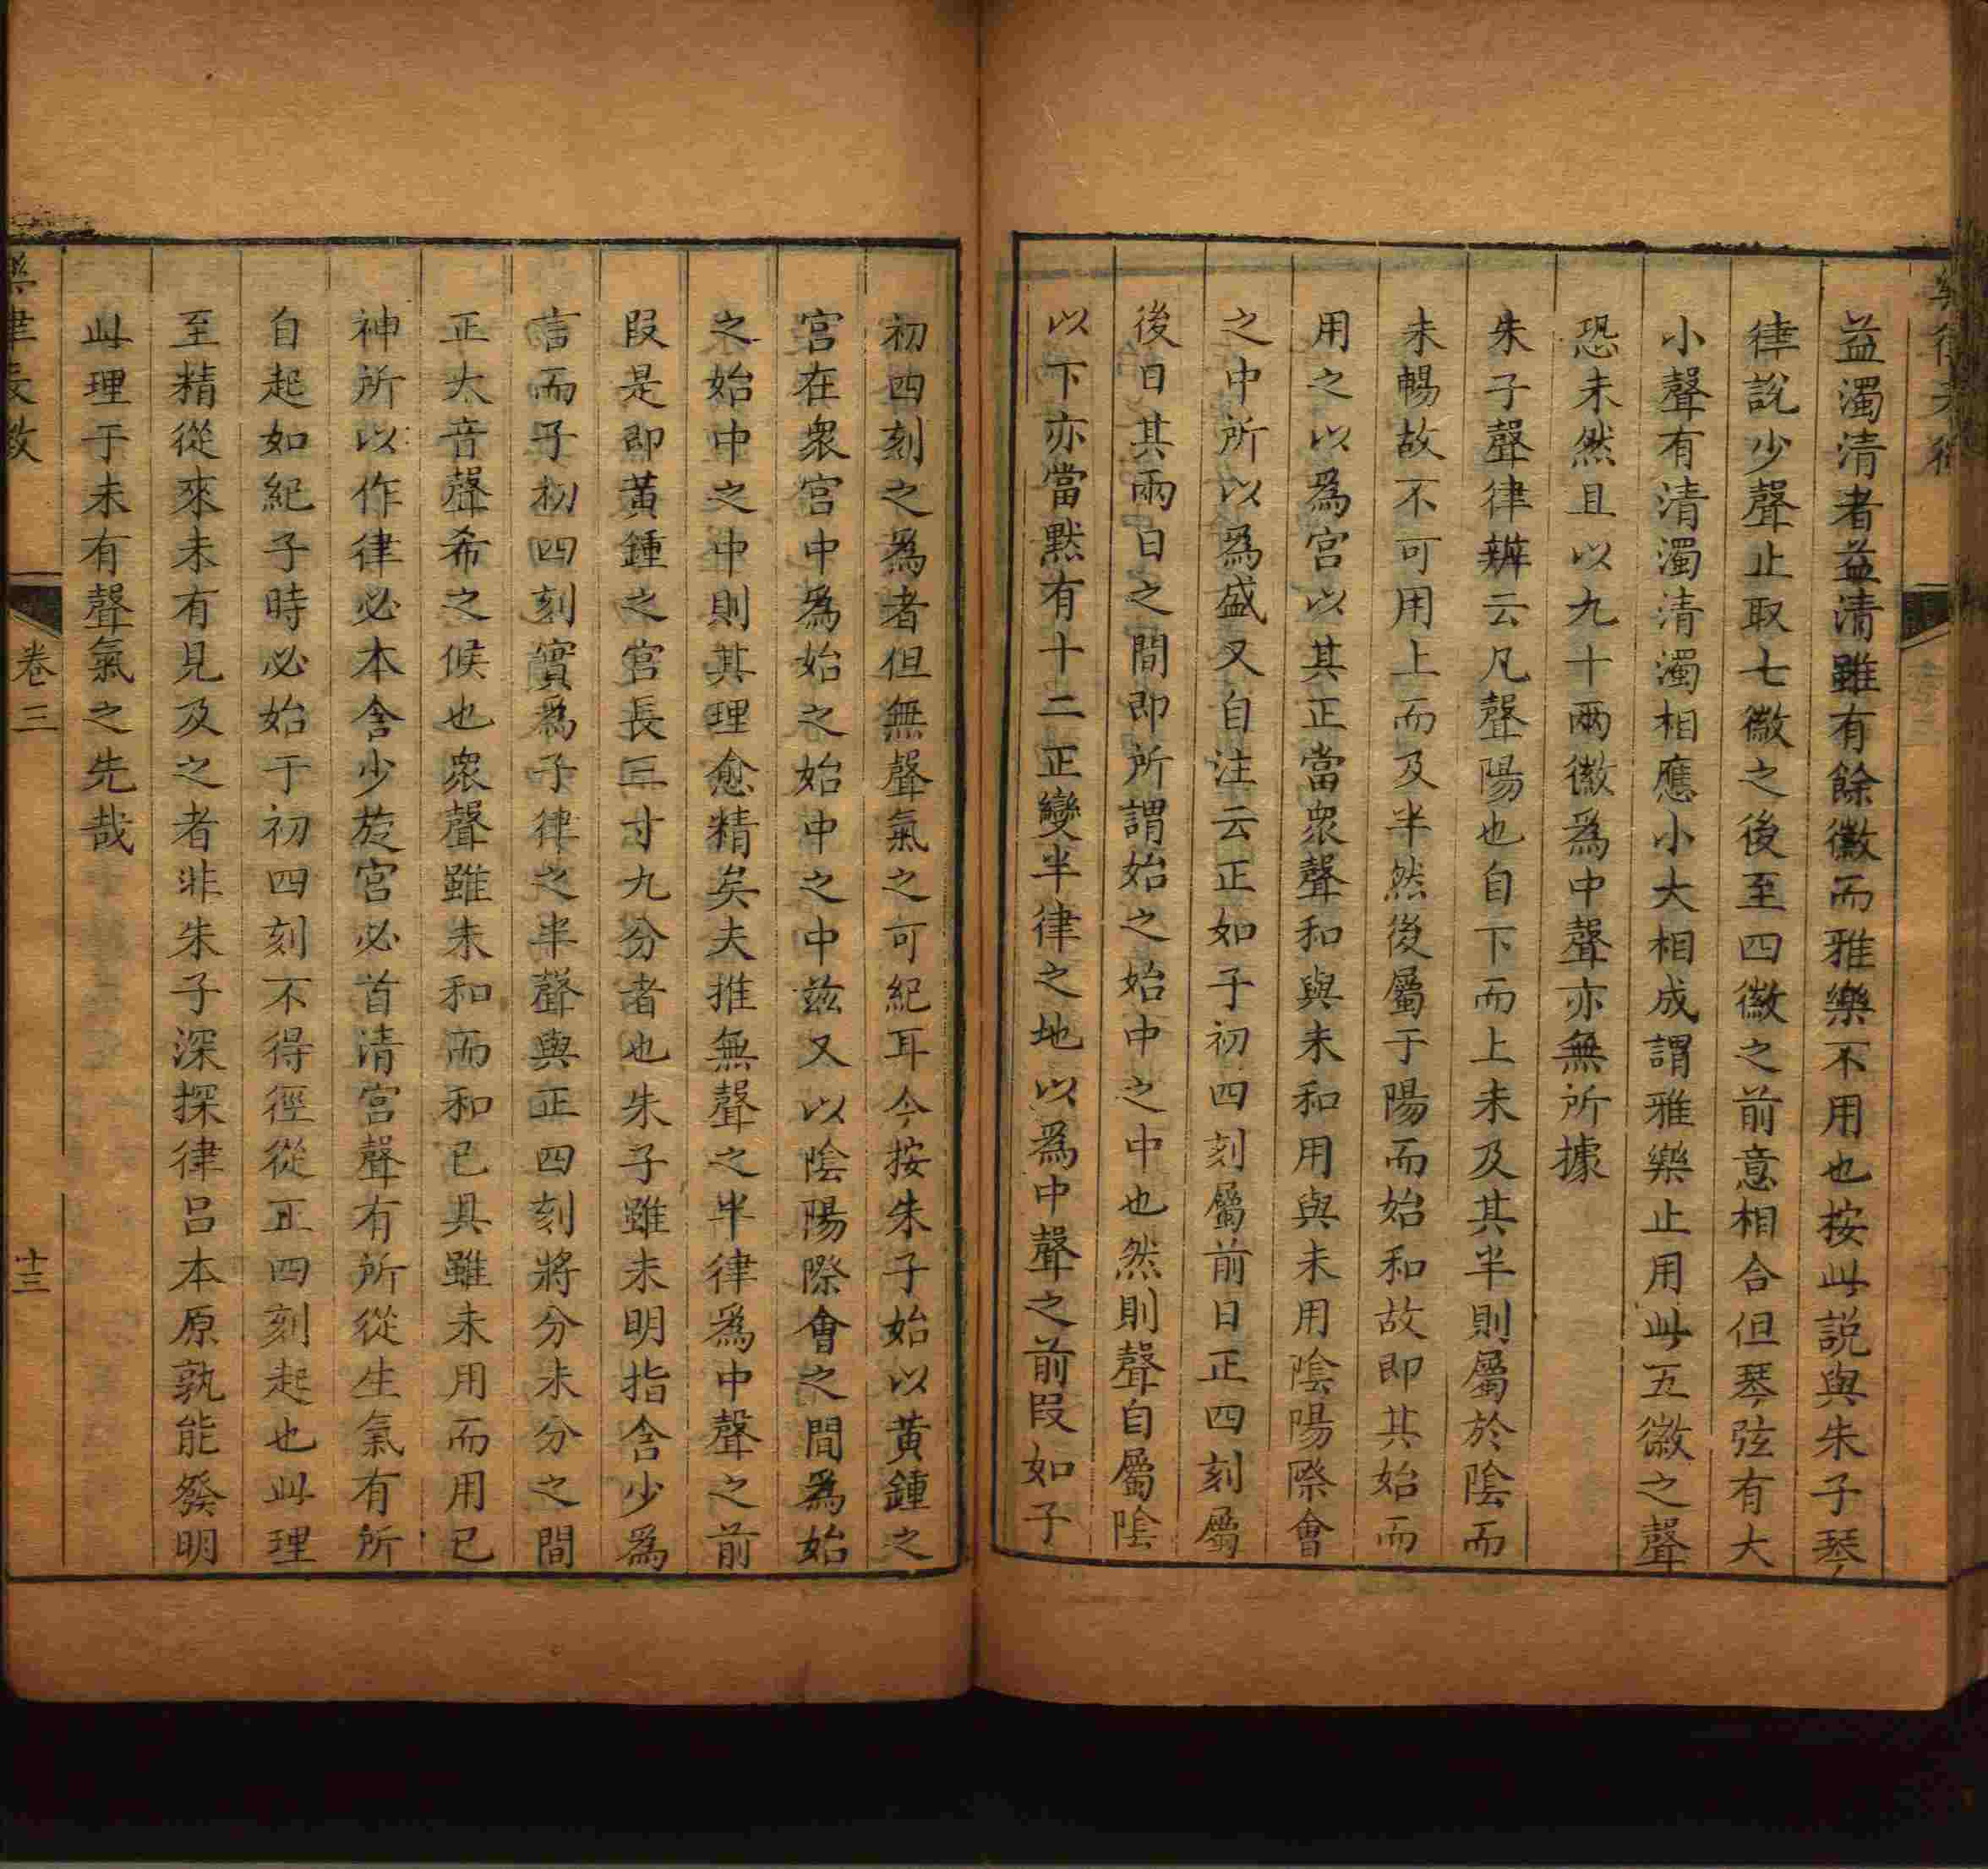 益濁清者益清雖有餘徽而雅樂不用也按此説與朱子琴
律說少聲止取七徽之後至四徽之前意相合但琴弦有大
小聲有清濁清濁相應小大相成謂雅樂止用此五徽之聲
恐未然且以九十兩徽爲中聲亦無所據
朱子聲律辨云凡聲陽也自下而上未及其半則屬於陰而
未暢故不可用上而及半然後屬于陽而始和故即其始而
用之以爲宫以其正當衆聲和與未和用與未用陰陽際會
之中所以爲盛又自注云正如子初四刻屬前日正四刻屬
後日其兩日之間即所謂始之始中之中也然則聲自屬陰
以下亦當默有十二正變半律之地以爲中聲之前段如子
初四刻之爲者但無聲氣之可紀耳今按朱子始以黄鍾之
宫在衆宫中爲始之始中之中兹又以陰陽際會之間爲始
之始中之中則其理愈精矣夫推無聲之半律爲中聲之前
段是即黄鍾之宫長三寸九分者也朱子雖未明指含少爲
言而子初四刻實爲子律之半聲與正四刻將分未分之間
正大音聲希之候也衆聲雖未和而和已具雖未用而用已
神所以作律必本含少旋宫必首清宫聲有所從生氣有所
自起如紀子時必始于初四刻不得徑從正四刻起也此理
至精從來未有見及之者非朱子深探律呂本原孰能發明
此理于未有聲氣之先哉
卷三
十三